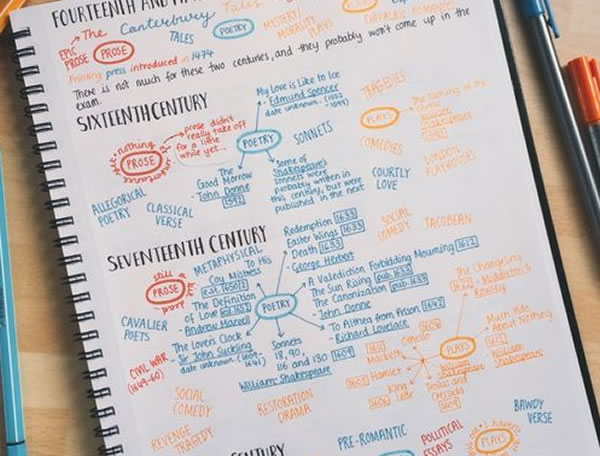 FOURTEENTH AND
The Canterbury Tales
EPIC PROSE
PROSE
TALES
POETRY
MYSTERY/
MORALITY
PLAYS
CHIVALRIC ROMANCES
Printing press introduced in 1474
There is not much for these two centuries, and they probably won't come up in the
exam.
SIXTEENTH CENTURY
My Love is Like to Ice
- Edmund Spencer
date unknown.
TRAGEDIES
PLAYS
The Taming of the
prose didn't
really take off
for a little
while yet...
PROSE
POETRY
SONNETS
COMEDIES
LONDON
PLAYHOUSES
The
Good Morrow
- John Donne
1592
some of
Shakespeare's
sonnets were
probably written in
this century, but were
published in the next
COURTLY
LOVE
ALLEGORICAL
POETRY
CLASSICAL
VERSE
SEVENTEENTH CENTURY
SOCIAL
COMEDY
JACOBEAN
Redemption 1633
Easter Wings 1633
Death 1633
- George Herbert
METAPHYSICAL
To His
Coy Mistress
est. 1650s
The Definition
of Love
- Andrew Marvell
still
PROSE
POETRY
A Valediction Forbidding Mourning 1612
The Sun Rising pub. 1633
The Canonization pub. 1633
- John Donne
The Changeling
1622 - Middleton &
Rowley
CAVALIER
POETS
The Lover's Clock
- Sir John Suckling
date unknown. (1609-
1641)
To Althea from Prison 1642
- Richard Lovelace
Sonnets
18, 90,
116 and 130 1609
William Shakespeare
CIVIL WAR
(1649-60)
Othello
Macbeth
Hamlet
King
Lear
1606
PLAYS
Much Ado
About Nothing
William
Shakespeare
Troilus and
Cressida
1609
SOCIAL
COMEDY
RESTORATION
DRAMA
REVENGE
TRAGEDY
BAWDY
VERSE
PRE-ROMANTIC
POLITICAL
ESSAYS
PLAYS
CENTURY